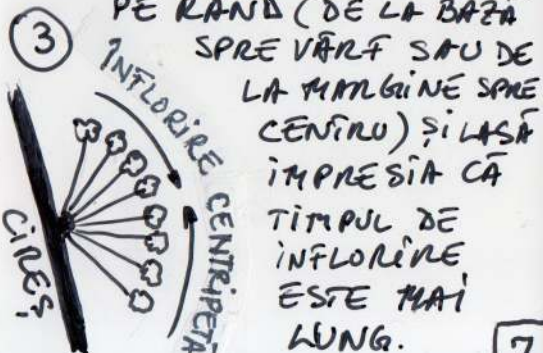 PE RÂND (DE LA BAZĂ
3
SPRE VÂRF SAU DE
LA MARGINE SPRE
CENTRU) ȘI LASĂ
IMPRESIA CĂ
TIMPUL DE
ÎNFLORIRE
ESTE MAI
LUNG.
ÎNFLORIRE CENTRIPETĂ
CIREȘ
7